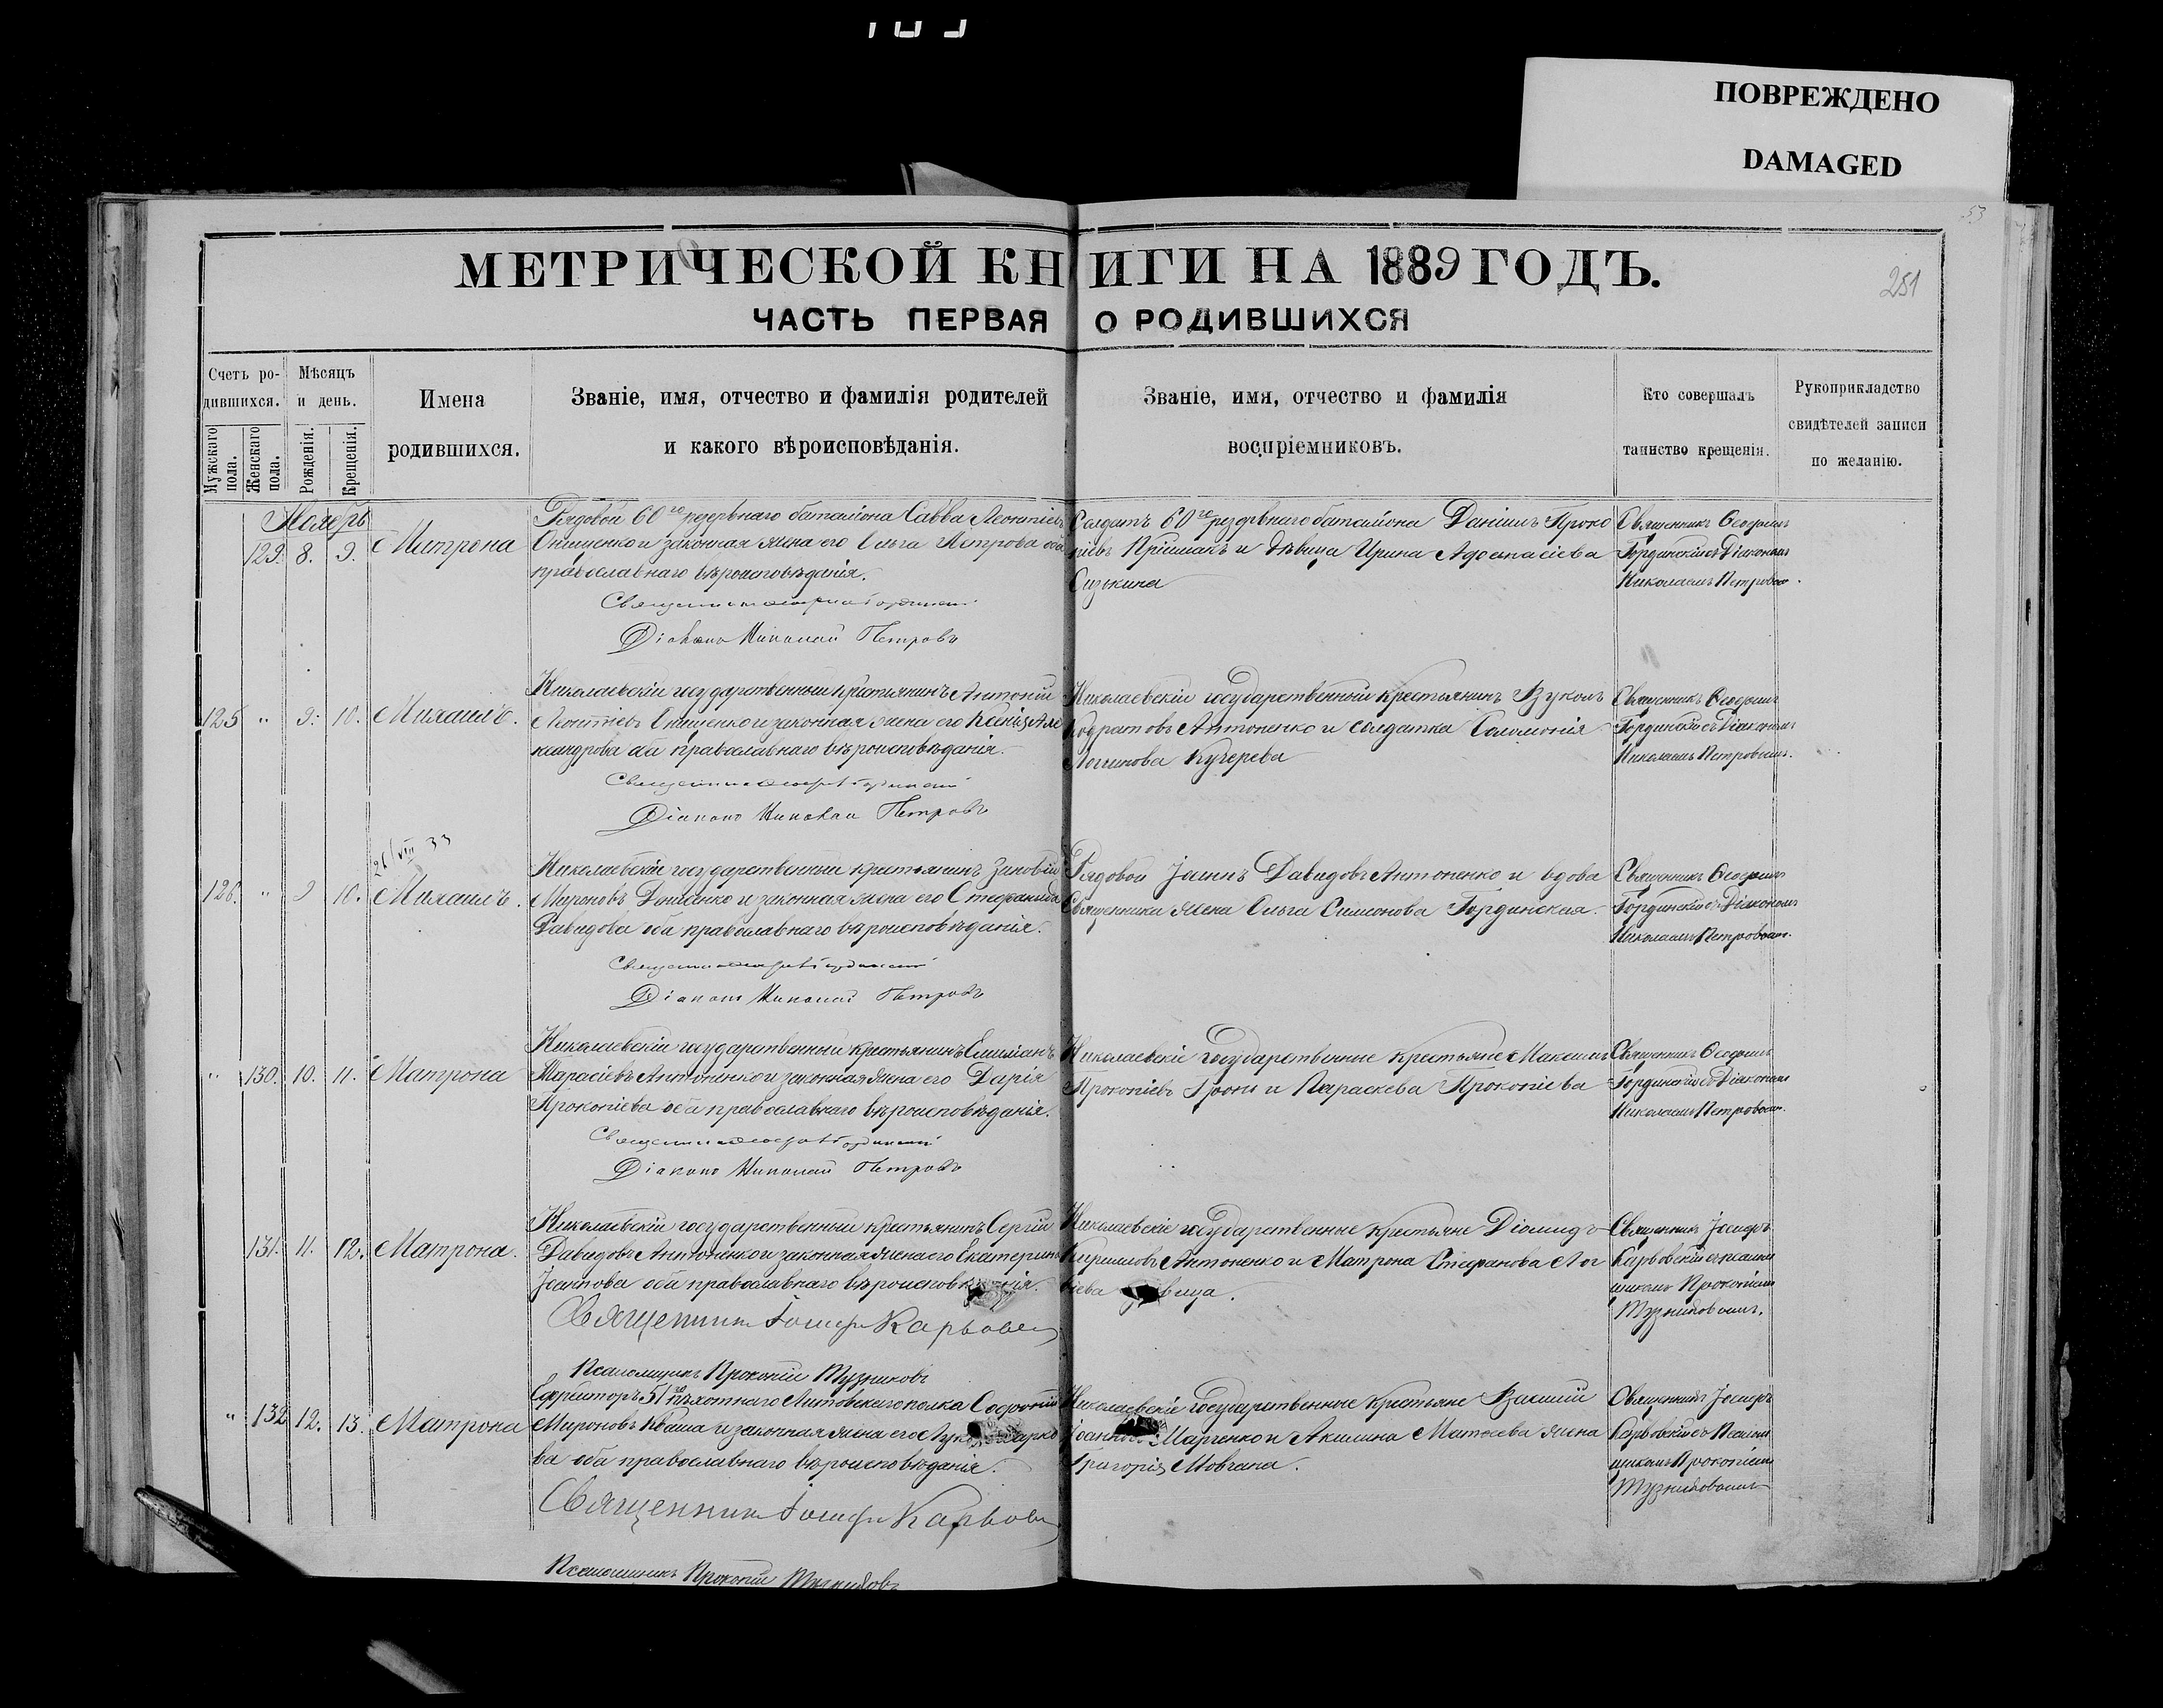 ПОВРЕЖДЕНО
DAMAGED
53
251
МЕТРИЧЕСКОЙ КНИГИ НА 1889 ГОДЪ.
ЧАСТЬ ПЕРВАЯ О РОДИВШИХСЯ
Счетъ родившихся.
Мужскаго пола.
Женскаго пола.
Мѣсяцъ и день.
Рожденія.
Крещенія.
Имена родившихся.
Званіе, имя, отчество и фамилія родителей
и какого вѣроисповѣданія.
Званіе, имя, отчество и фамилія
воспріемниковъ.
Кто совершалъ
таинство крещенія.
Рукоприкладство
свидѣтелей записи
по желанію.
Ноябрь
129. 8. 9. Матрона
Рядовой 60го резервнаго баталіона Савва Леонтіевъ
Онищенко и законная жена его Ольга Петрова оба
православнаго вѣроисповѣданія.
Діаконъ Николай Петровъ
Солдатъ 60го резервнаго баталіона Даніилъ Проко
піевъ Пріймакъ и дѣвица Ирина Афанасіева
Священникъ Ѳеодоръ
Гординскій съ Діакономъ
Николаемъ Петровымъ.
125 " 9. 10. Михаилъ.
Николаевскій государственный крестьянинъ Антоній
Леонтіевъ Онищенко и законная жена его Ксенія Але
ксандрова оба православнаго вѣроисповѣданія.
Діаконъ Николай Петровъ
Николаевскій государственный крестьянинъ Вуколъ
Кодратовъ Антоненко и солдатка Соломонія
Логинова Кучерева
Священникъ Ѳеодоръ
Гординскій съ Діакономъ
Николаемъ Петровымъ.
26/VIII 33
126. " 9 10. Михаилъ.
Николаевскій государственный крестьянинъ Зиновій
Мироновъ и законная жена его Стефанида
Давидова оба православнаго вѣроисповѣданія.
Діаконъ Николай Петровъ
Рядовой Іоаннъ Давидовъ Антоненко и вдова
Священника жена Ольга Симонова Гординская.
Священникъ Ѳеодоръ
Гординскій съ Діакономъ
Николаемъ Петровымъ.
" 130. 10. 11. Матрона
Николаевскій государственный крестьянинъ Емиліанъ
Тарасіевъ Антоненко и законная жена его Дарія
Прокопіева оба православнаго вѣроисповѣданія.
Діаконъ Николай Петровъ
Николаевскіе государственные крестьяне Максимъ
Прокопіевъ и Параскева Прокопіева
Священникъ Ѳеодоръ
Гординскій съ Діакономъ
Николаемъ Петровымъ.
131. 11. 12. Матрона.
Николаевскій государственный крестьянинъ Сергій
Давидовъ Антоненко и законная жена его Екатерина
Іоаннова оба православнаго вѣроисповѣданія.
Священникъ Іосифъ
Псаломщикъ Прокопій
Николаевскіе государственные крестьяне Діомидъ
Кирилловъ Антоненко и Матрона Стефанова
Священникъ Іосифъ
съ псалом
щикомъ Прокопіемъ
" 132 12. 13. Матрона
Ефрейторъ 51го пѣхотнаго Литовскаго полка Софроній
Мироновъ Кваша и законная жена его
ва оба православнаго вѣроисповѣданія.
Священникъ Іосифъ
Псаломщикъ Прокопій
Николаевскіе государственные крестьяне Василій
Марченко и Акилина Матѳеева жена
Григорія Мовчана.
Священникъ Іосифъ
съ Псалом
щикомъ Прокопіемъ